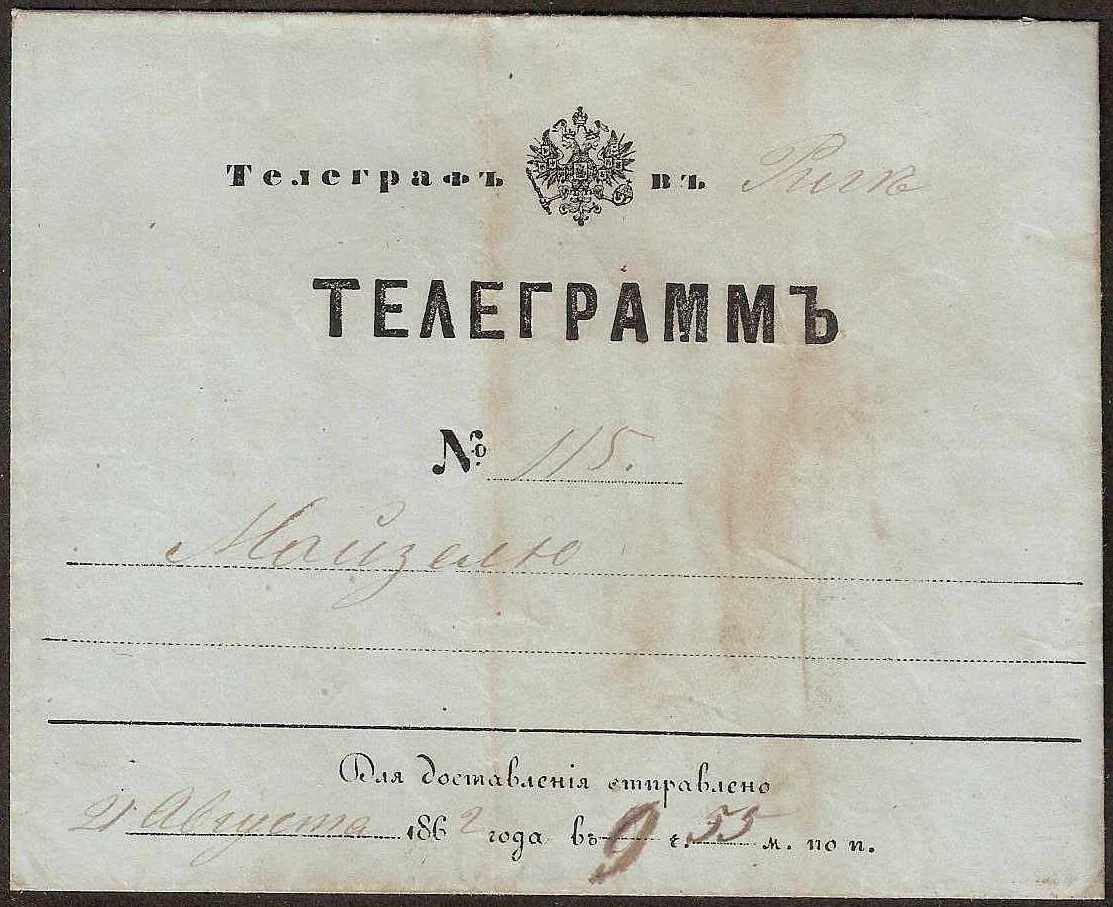 Телеграфъ въ Ригѣ
ТЕЛЕГРАММЪ
№ 115.
Майзелю
Для доставленія отправлено
21 Августа 1862 года въ 9 ч. 55 м. по п.